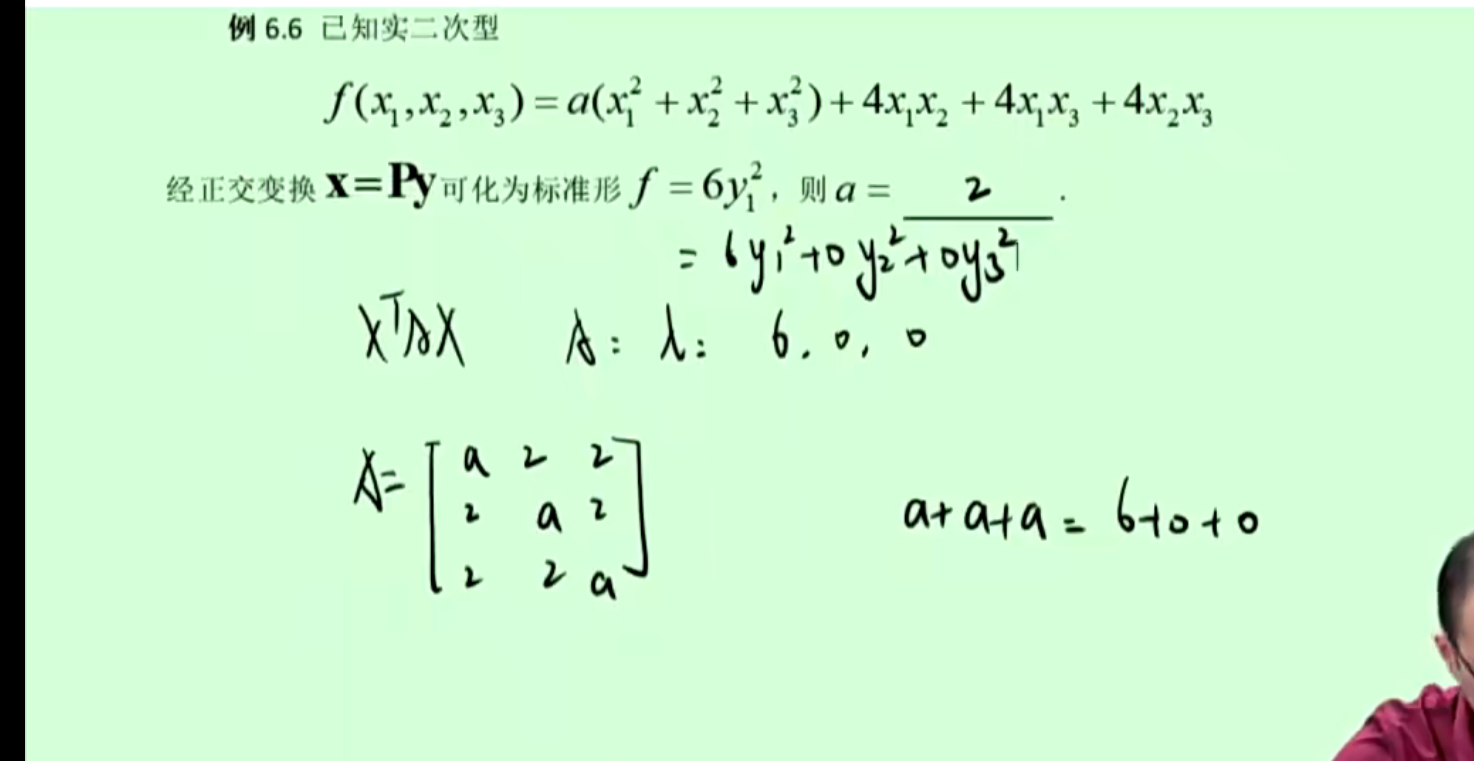 例 6.6 已知实二次型
f(x₁,x₂,x₃)=a(x₁²+x₂²+x₃²)+4x₁x₂+4x₁x₃+4x₂x₃
经正交变换 x=Py 可化为标准形 f=6y₁²，则 a= 2 .
= 6y₁²+0y₂²+0y₃²
XᵀAX A: λ: 6. 0, 0
A= [a 2 2
2 a 2
2 2 a]
a+a+a = 6+0+0